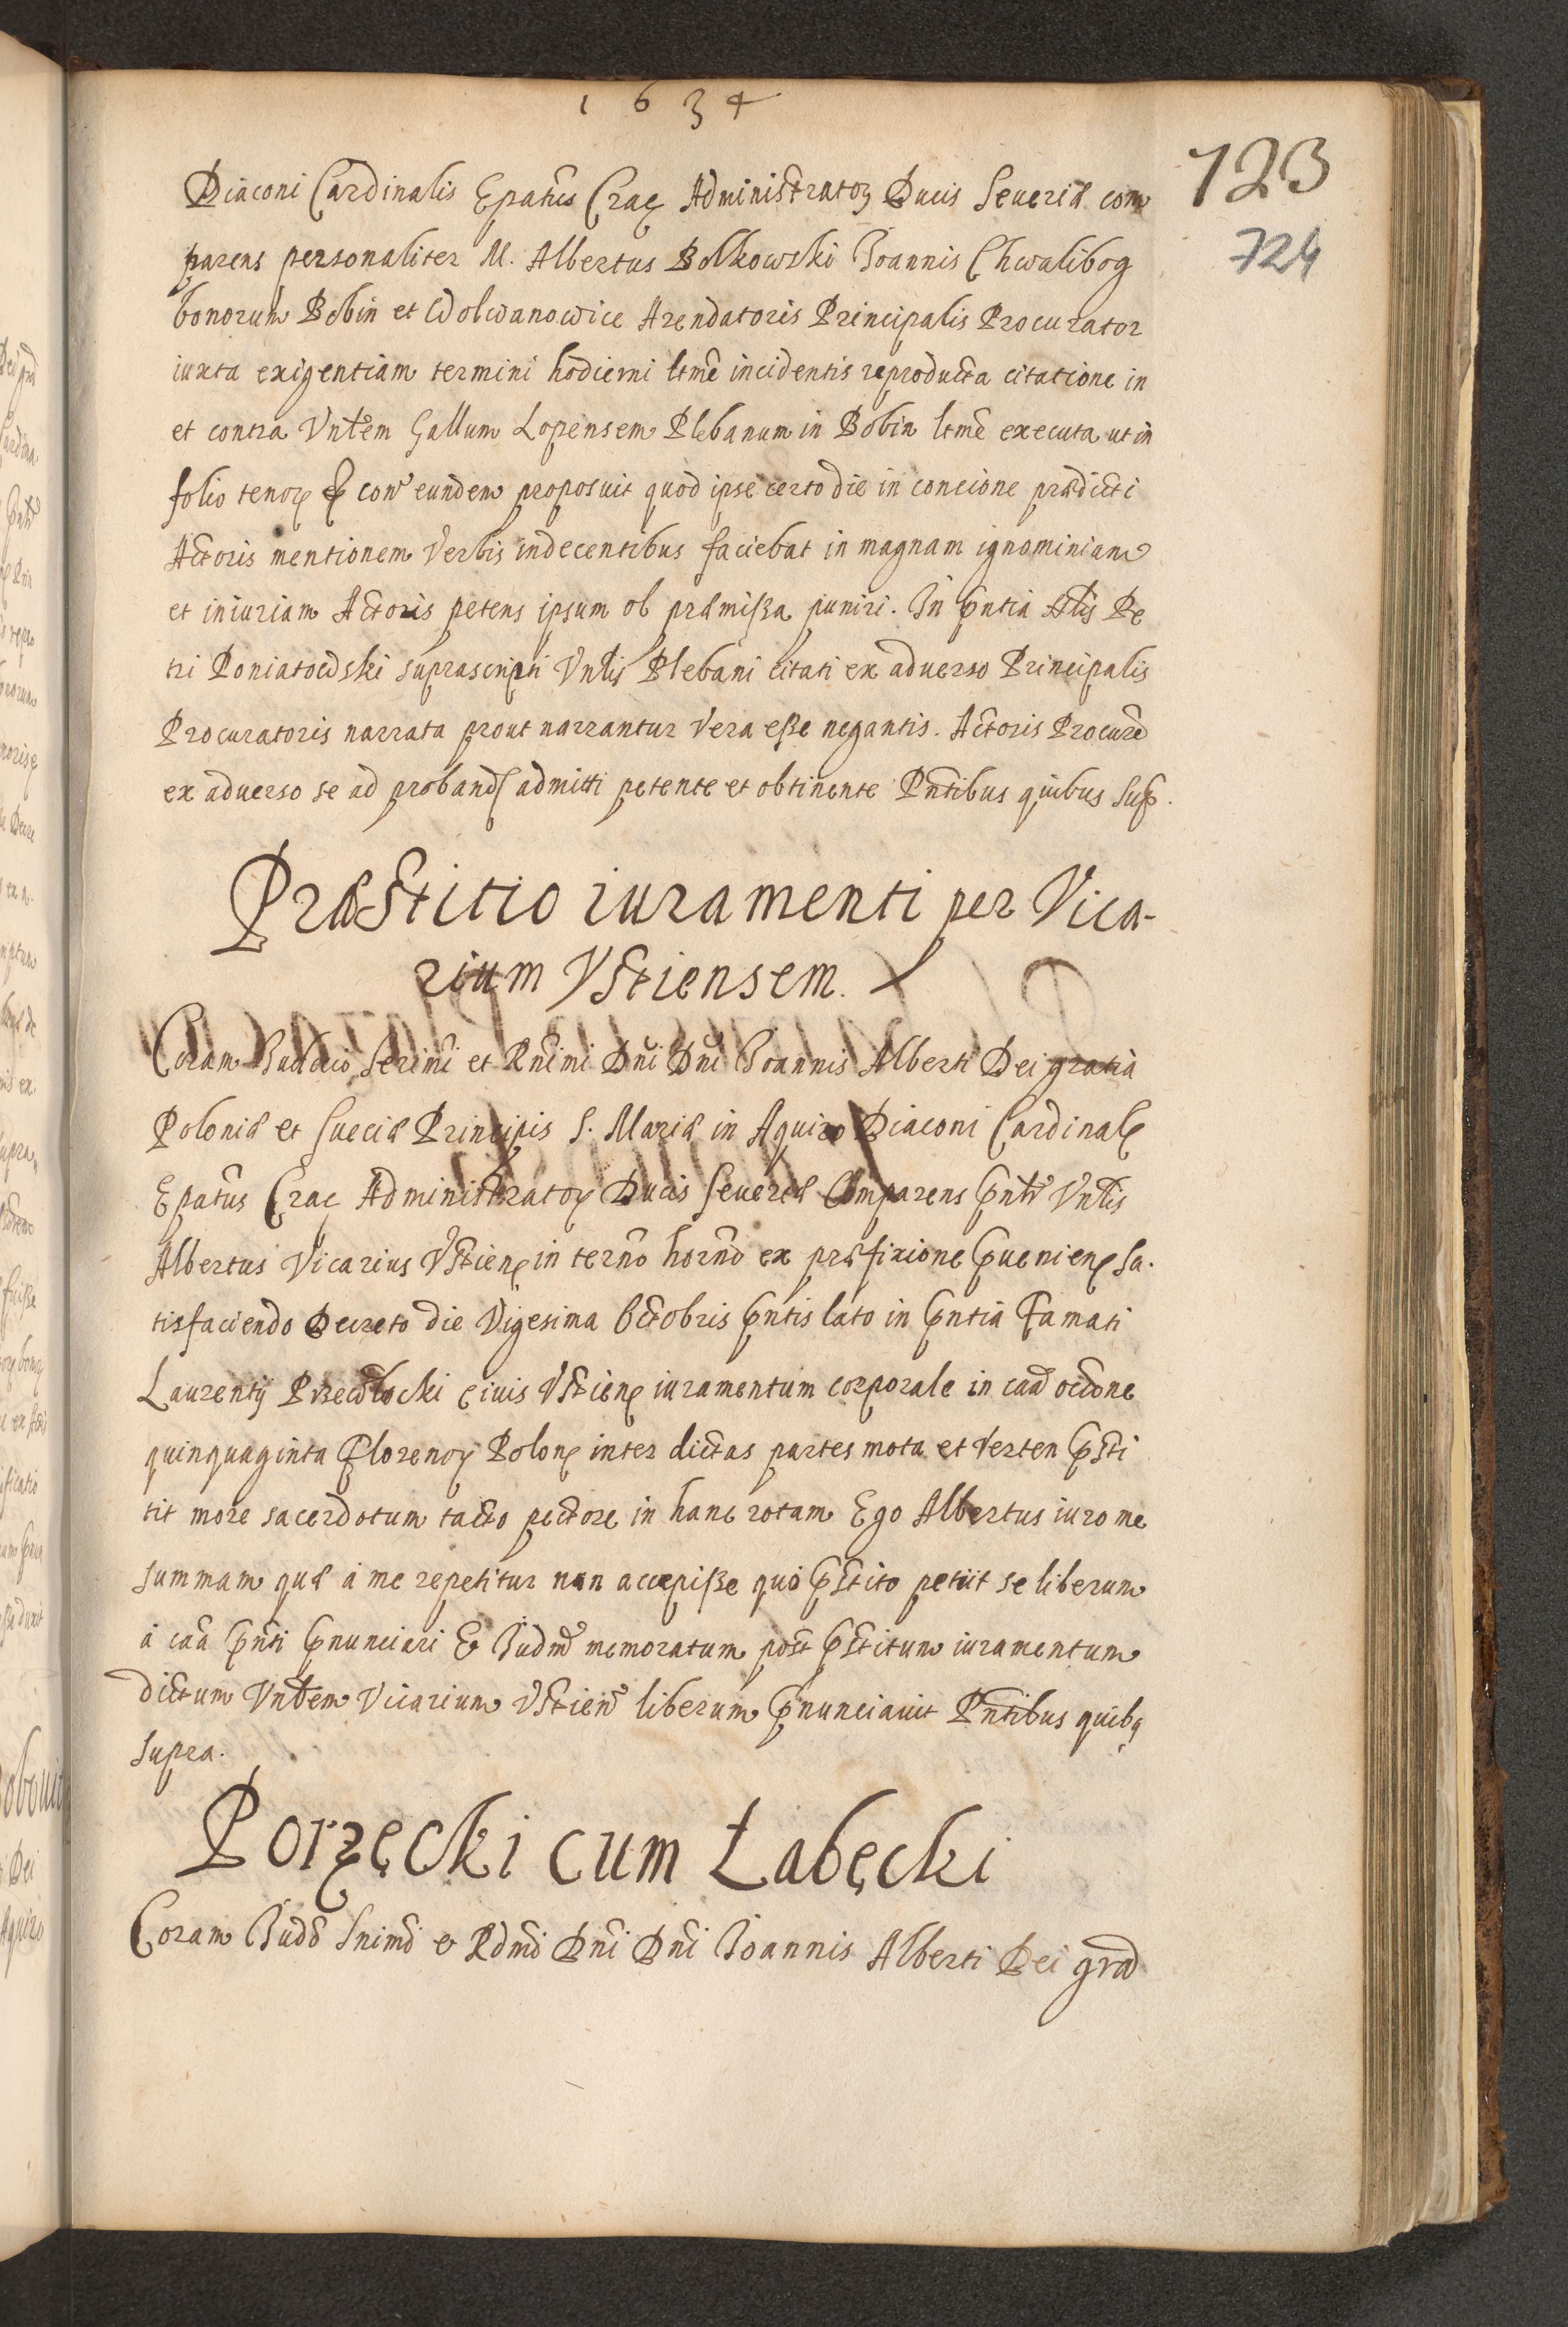 1634
123
724
Diaconi Cardinalis Epatus Crac Administrator Ducis Seueriæ com
parens personaliter M. Albertus Bolkowski Joannis Chwalibog
bonorum Bobin et Wolwanowice Arendatoris Principalis Procurator
iuxta exigentiam termini hodierni ltme incidentis reproducta citatione in
et contra Vnlem Gallum Lopensem Plebanum in Bobin ltme executa ut in
folio tenor & con eundem proposuit quod ipse certo die in concione prædicti
Actoris mentionem verbis indecentibus faciebat in magnam ignominiam
et iniuriam Actoris petens ipsum ob præmißa puniri. In pntia Pe
tri Poniatowski suprascripti Vnlis Plebani citati ex aduerso Principalis
Procuratoris narrata prout narrantur vera eße negantis. Actoris Procure
ex aduerso se ad proband admitti petente et obtinente Pntibus quibus sup.
Præstitio iuramenti per Vica-
rium Vstiensem.
Coram Judicio Serimi et Rneimi Dni Dni Joannis Alberti Dei gratia
Poloniæ et Sueciæ Principis S. Mariæ in Aquiro Diaconi Cardinal
Epatus Crac Administrator Ducis Seueriæ Comparens pntr Vnlis
Albertus Vicarius Vstien in terno horno ex præfixione pueniens Sa.
tisfaciendo Decreto die Vigesima Octobris pntis lato in pntia Famati
Laurentij Przecłocki ciuis Vstien iuramentum corporale in caa occone
quinquaginta Florenor Polon inter dictas partes mota et verten psti
tit more sacerdotum tacto pectore in hanc rotam Ego Albertus iuro me
summam quæ à me repetitur non accepiße quo pstito petiit se liberum
à caa pnti pnunciari & Judm memoratum post pstitum iuramentum
dictum Vnlem Vicarium Vstien liberum pnunciauit Pntibus quibq
supra.
Porzęcki cum Łabęcki
Coram Judo Snimi & Rdmi Dni Dni Joannis Alberti Dei gra